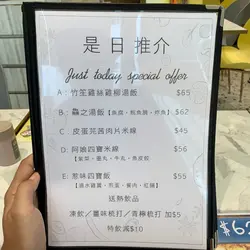 是日推介
Just today special offer
A：竹笙雞絲雞柳湯飯 $65
B：蟲之湯飯 $62
C：皮蛋芫茜肉片米線 $45
D：阿嬌四寶米線 $56
【紫菜、墨丸、牛丸、魚皮餃】
E：惹味四寶飯 $55
送熱飲品
凍飲/薑味梳打/青檸梳打 加$5
特飲減$10